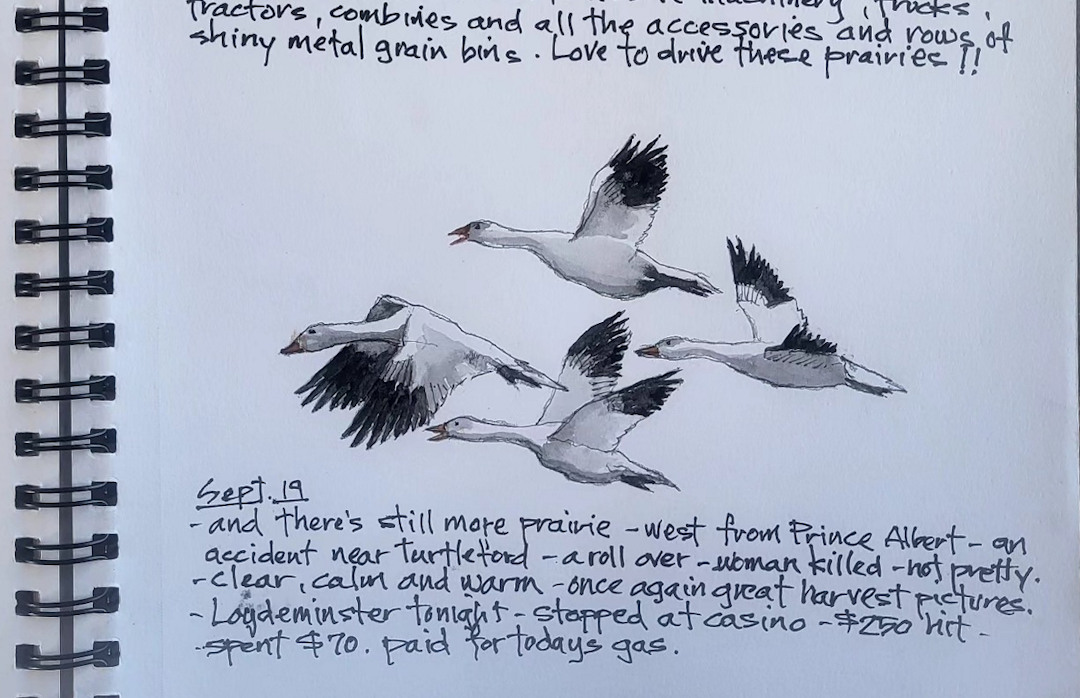 tractors, combines and all the accessories and rows of
shiny metal grain bins. Love to drive these prairies!!
Sept. 19
- and there's still more prairie - west from Prince Albert - an
accident near Turtleford - a roll over - woman killed - not pretty.
- clear, calm and warm - once again great harvest pictures.
- Loydeminster tonight - stopped at casino - $250 hit -
- spent $70. paid for todays gas.